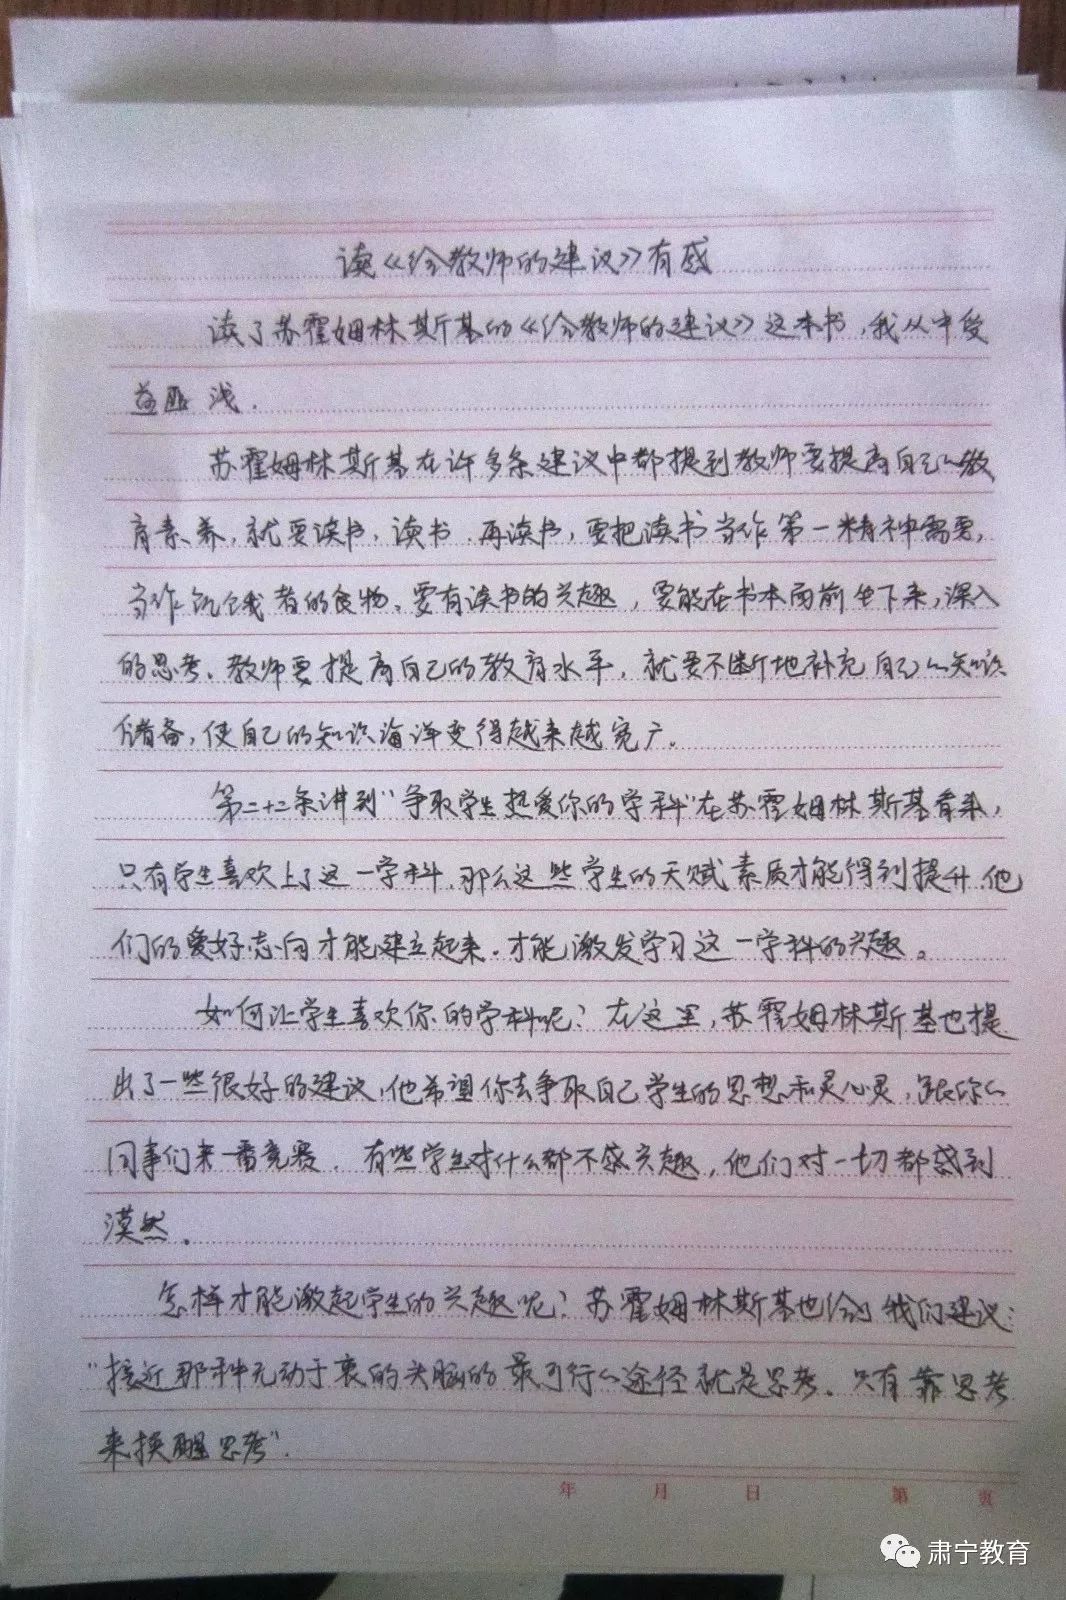 读《给教师的建议》有感
读了苏霍姆林斯基的《给教师的建议》这本书，我从中受
益匪浅.
苏霍姆林斯基在许多条建议中都提到教师要提高自己的教
育素养，就要读书，读书，再读书，要把读书当作第一精神需要，
当作饥饿者的食物。要有读书的兴趣，要能在书本面前坐下来，深入
的思考。教师要提高自己的教育水平，就要不断地补充自己的知识
储备，使自己的知识海洋变得越来越宽广。
第二十二条讲到"争取学生热爱你的学科"在苏霍姆林斯基看来，
只有学生喜欢上了这一学科，那么这些学生的天赋素质才能得到提升，他
们的爱好志向才能建立起来，才能激发学习这一学科的兴趣。
如何让学生喜欢你的学科呢？在这里，苏霍姆林斯基也提
出了一些很好的建议，他希望你去争取自己学生的思想和灵心灵，跟你的
同事们来一番竞赛。有些学生对什么都不感兴趣，他们对一切都感到
漠然。
怎样才能激起学生的兴趣呢？苏霍姆林斯基也给了我们建议：
"接近那种无动于衷的头脑的最可行的途径就是思考。只有靠思考
来换醒思考".
年 月 日 第 页
肃宁教育